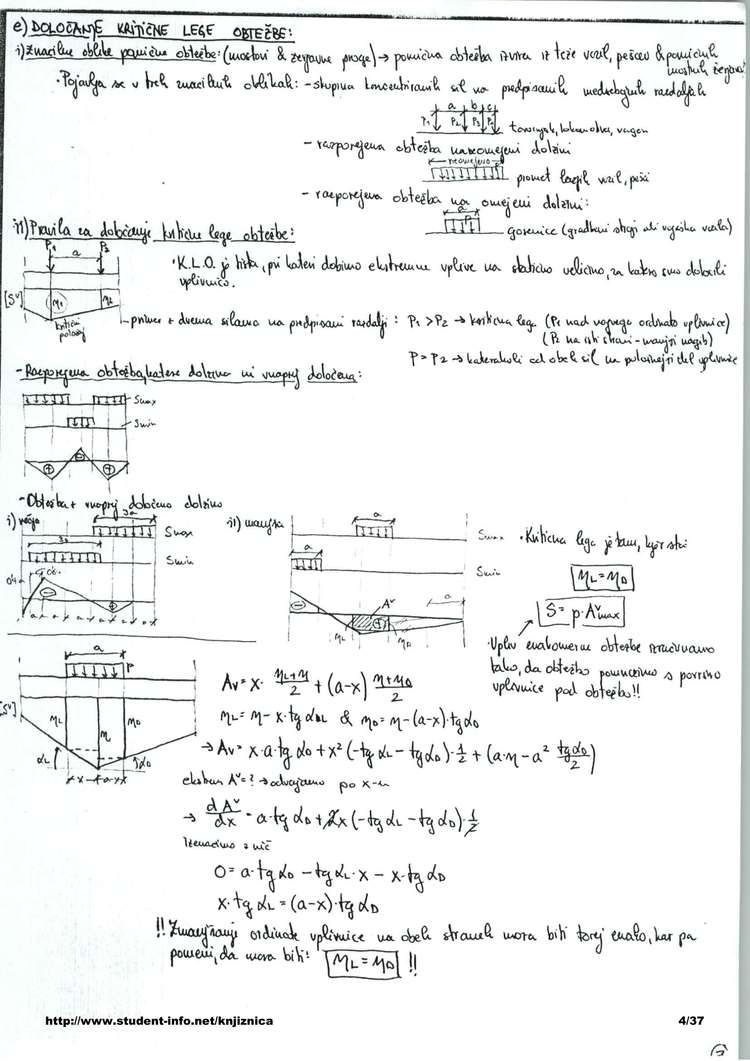 e) DOLOČANJE KRITIČNE LEGE OBTEŽBE:
i) Značilne oblike pomične obtežbe: (mostovi & žerjavne proge) → pomična obtežba izvira iz teže vozil, pešcev & pomičnih
mostnih žerjavov
• Pojavlja se v treh značilnih oblikah: - skupina koncentriranih sil na predpisanih medsebojnih razdaljah
a b c
P1 P2 P3 P4
tovornjak, lokomotiva, vagon
- razporejena obtežba na neomejeni dolžini
neomejeno
promet lažjih vozil, peš
- razporejena obtežba na omejeni dolžini:
a
gosenice (gradbeni stroji ali vojaška vozila)
ii) Pravila za določanje kritične lege obtežbe:
P1 P2
a
• K.L.O. je tista, pri kateri dobimo ekstremne vplive na statično veličino, za katero smo določili
vplivnico.
[Sv] η1 η2
kritični
položaj
- primer z dvema silama na predpisani razdalji: P1 > P2 → kritična lega (P1 nad največjo ordinato vplivnice)
(P2 na isti strani - manjši nagib)
P1 = P2 → katerakoli od obeh sil na položnejši del vplivnice
- Razporejena obtežba, katere dolžina ni vnaprej določena:
Smax
Smin
- Obtežba z vnaprej določeno dolžino
i) večja
3a
Smax
3a
Smin
ii) manjša
a
Smax
a
Smin
Av
a
ηL ηD
• Kritična lega je tam, kjer sta
ηL = ηD
S = p · Avmax
• Vpliv enakomerne obtežbe izračunamo
tako, da obtežbo pomnožimo s površino
vplivnice pod obtežbo!!
a
p
[Sv] ηL η ηD
αL αD
x a-x
Av = x · (ηL+η)/2 + (a-x) (η+ηD)/2
ηL = η - x · tg αL & ηD = η - (a-x) · tg αD
→ Av = x · a · tg αD + x² (-tg αL - tg αD) · 1/2 + (a · η - a² tg αD/2)
ekstrem Av = ? → odvajamo po x-u
→ dAv/dx = a · tg αD + 2x (-tg αL - tg αD) · 1/2
Izenačimo z nič
0 = a · tg αD - tg αL · x - x · tg αD
x · tg αL = (a-x) · tg αD
!! Zmanjšanje ordinate vplivnice na obeh straneh mora biti torej enako, kar pa
pomeni, da mora biti: ηL = ηD !!
http://www.student-info.net/knjiznica
4/37